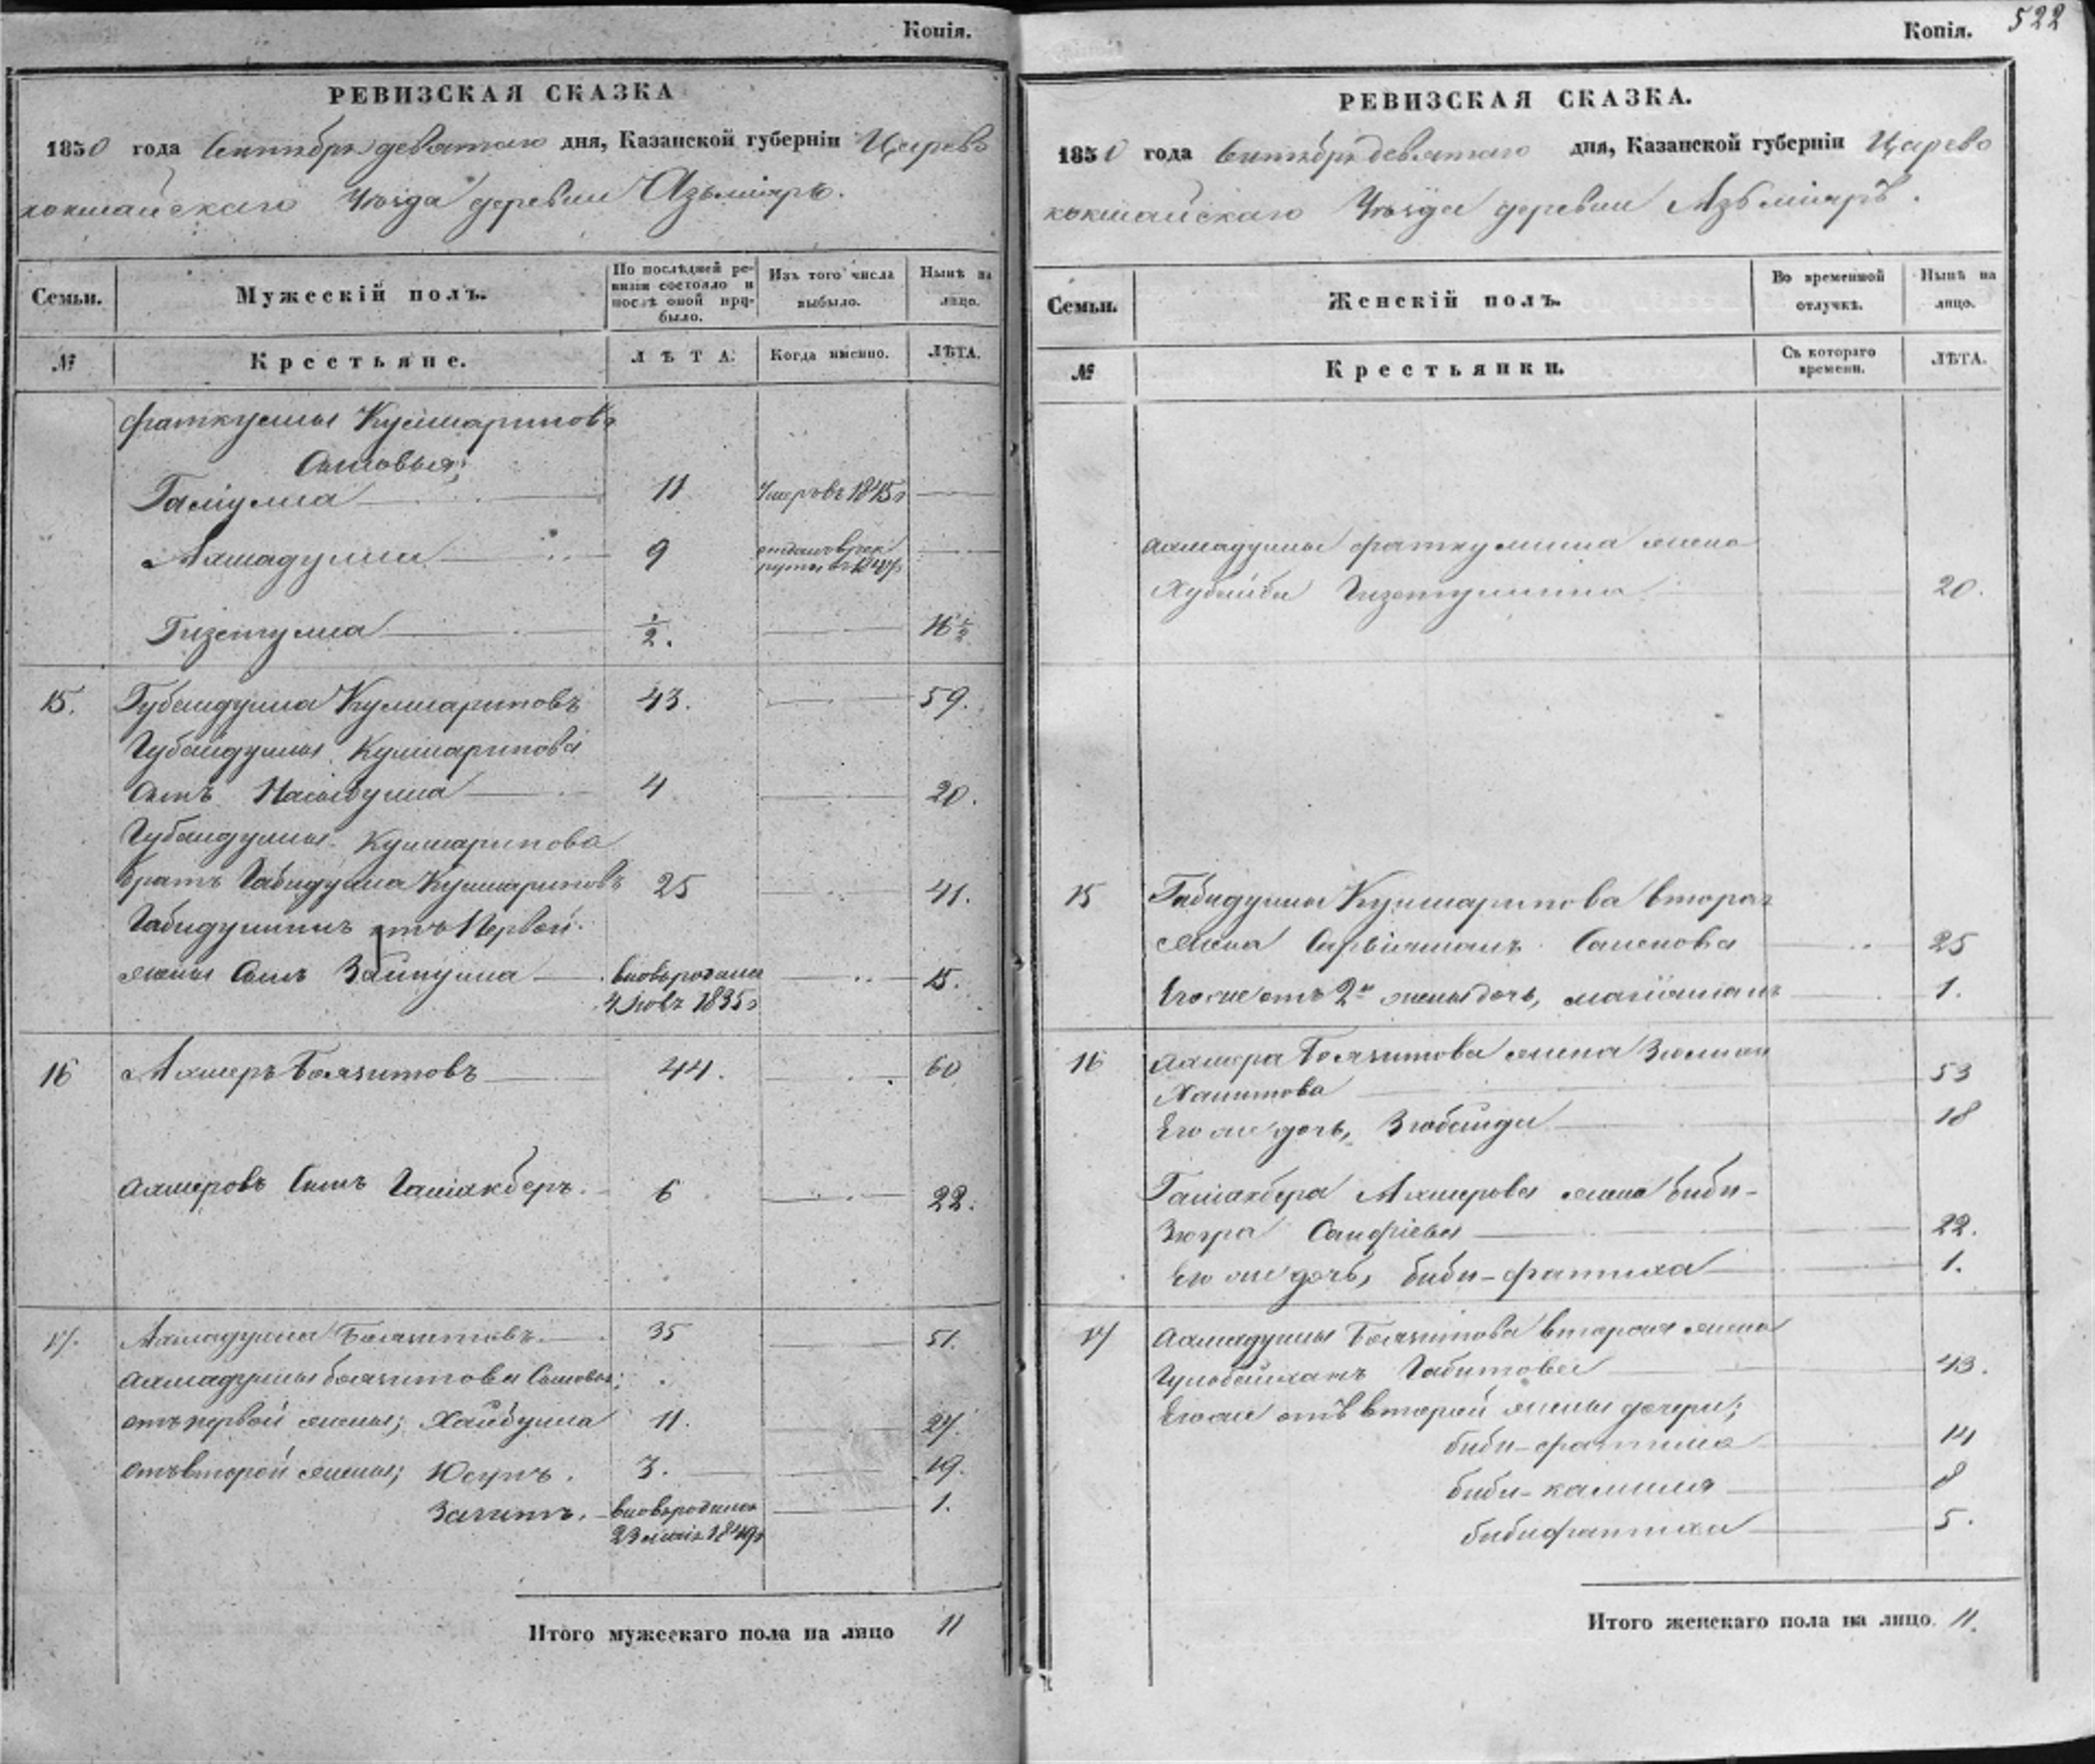 Копія.
РЕВИЗСКАЯ СКАЗКА
1850 года Сентября девятаго дня, Казанской губерніи Царево
кокшайскаго Уѣзда деревни Азьміяръ.
Семьи. Мужескій полъ. По послѣдней ревизіи состояло и послѣ оной прибыло. Изъ того числа выбыло. Нынѣ на лицо.
№ Крестьяне. ЛѢТА. Когда именно. ЛѢТА.
Фаткуллы Кулшариповъ
Сыновья;
Галіулла 11 Умеръ въ 1845 г
Ахмадулла 9 отданъ въ рек
руты въ
Гизетулла ½. 16 ½
15. Губайдулла Кулшариповъ 43. 59.
Губайдуллы Кулшарипова
Сынъ Насыбулла 4 20.
Губайдуллы Кулшарипова
братъ Габидулла Кулшариповъ 25 41.
Габидуллинъ отъ Первой
жены Сынъ Зайнулла вновь рожденъ 15.
1835 г
16 Ахмеръ Боязитовъ 44. 60
Ахмеровъ Сынъ Галіакберъ. 6 22.
17. Ахмадулла Боязитовъ 35 51.
Ахмадуллы Боязитова Сыновья;
отъ первой жены; Хайбулла 11. 27.
отъ второй жены; Юсупъ. 3. 19.
Загитъ. вновь рожденъ 1.
23 мая 1849 г
Итого мужескаго пола на лицо 11
Копія. 522
РЕВИЗСКАЯ СКАЗКА.
1850 года Сентября девятаго дня, Казанской губерніи Царево
кокшайскаго Уѣзда деревни Азьміяръ.
Семьи. Женскій полъ. Во временной отлучкѣ. Нынѣ на лицо.
№ Крестьянки. Съ котораго времени. ЛѢТА.
Ахмадуллы Фаткуллина жена
Хубейба Гизетуллина 20.
15 Габидуллы Кулшарипова вторая
жена Сарвиямалъ 25
Его же отъ 2й жены дочь, 1.
16 Ахмера Боязитова жена
Хамитова 53
Его же дочь, Зюбайда 18
Галіакбера Ахмерова жена Биби-
Зюгра 22.
Его же дочь, биби-фатиха 1.
17 Ахмадуллы Боязитова вторая жена
Габитова 43.
Его же отъ второй жены дочери;
биби-фатима 14
биби-камиля 8
бибифатиха 5.
Итого женскаго пола на лицо. 11.